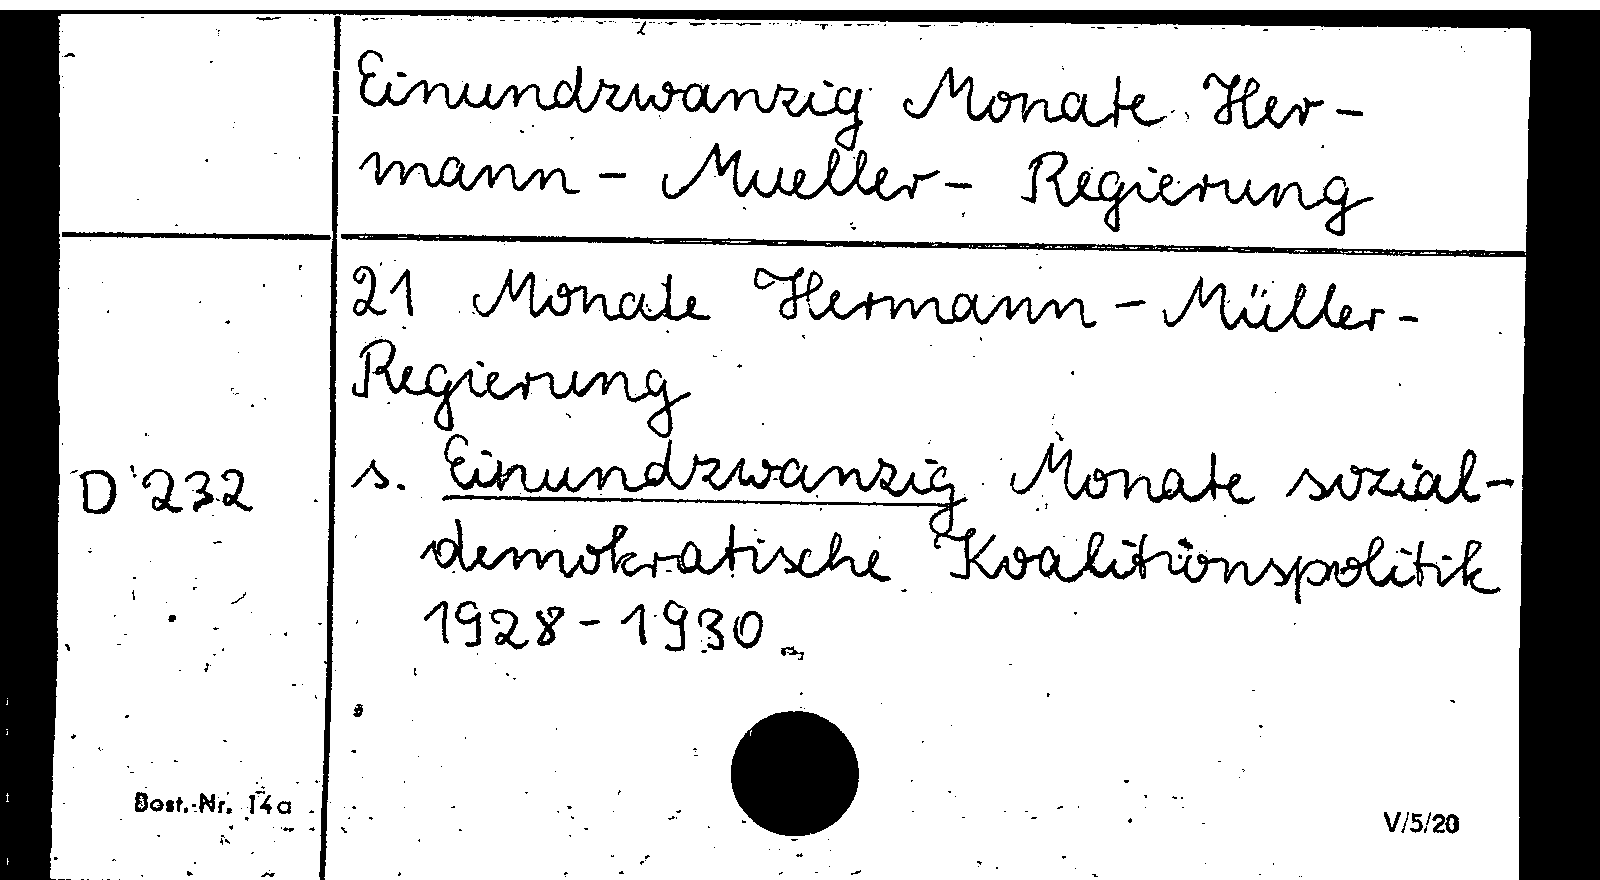 Einundzwanzig Monate Her-
mann - Mueller - Regierung
21 Monate Hermann - Müller -
Regierung
D 232 s. Einundzwanzig Monate sozial-
demokratische Koalitionspolitik
1928 - 1930
Best.-Nr. 14a
V/5/20